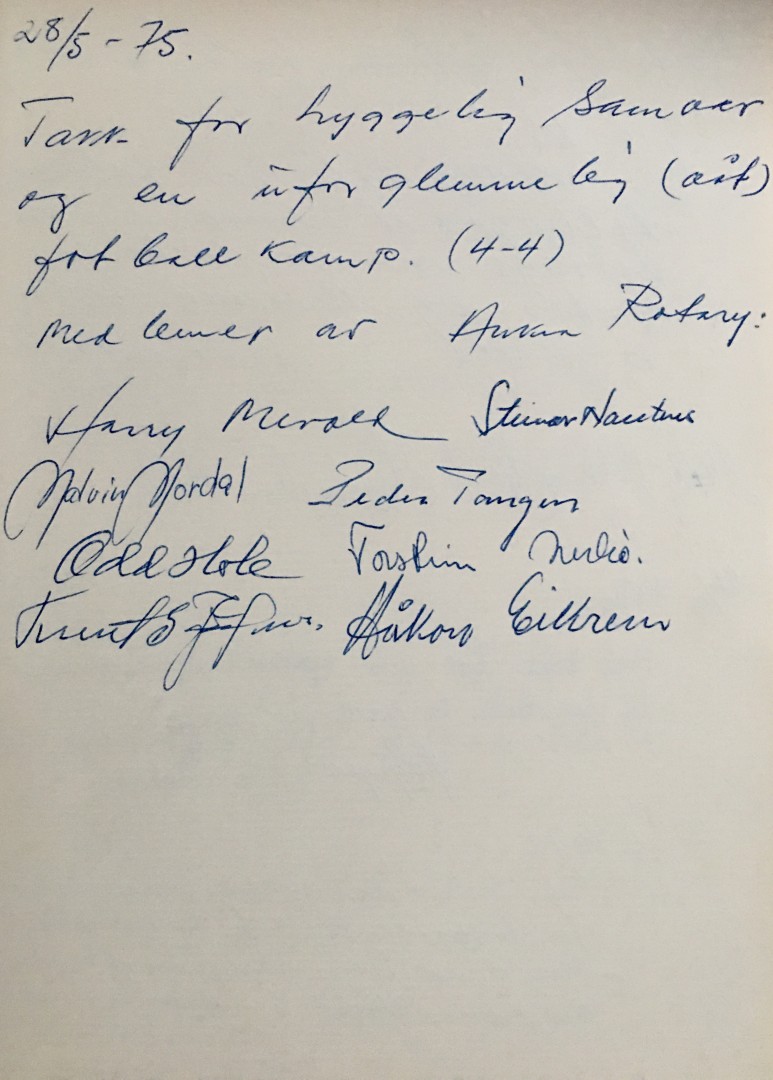 28/5 - 75.
Takk for hyggelig samvær
og en uforglemmelig (våt)
fotball kamp. (4-4)
Medlemer av Aukra Rotary:
Harry Steinar
Malvin Nordal Peder Tangen
Odd Hole Torstein
Håkon Eikrem